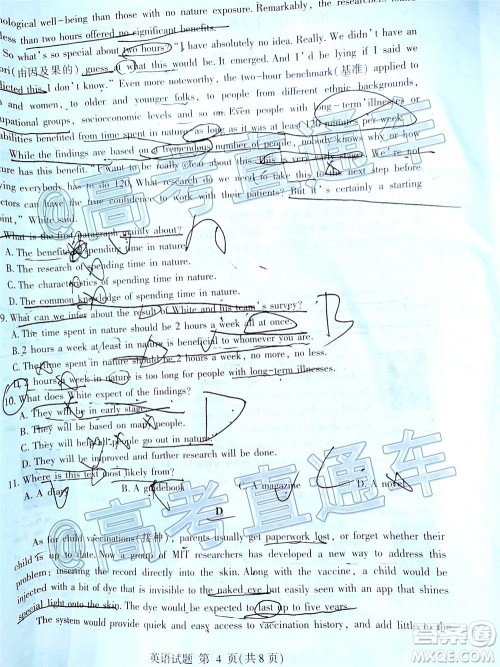 nological well-being than those with no nature exposure. Remarkably, the researchers found
less than two hours offered no significant benefits.
So what's so special about two hours? "I have absolutely no idea. Really. We didn't
ori(由因及果的) guess, it what this would be. It emerged. And I'd be lying if I said we
dicted this I don't know." Even more noteworthy, the two-hour benchmark(基准) applied to
n and women, to older and younger folks, to people from different ethnic backgrounds,
upational groups, socioeconomic levels and so on. Even people with long-term illnesses or
abilities benefited from time spent in nature as long as it was at least 120 minutes per week.
While the findings are based on a tremendous number of people, nobody knows why or how
nature has this benefit. "I want to be really clear about this, this is very early stage. We're not
ying everybody has to do 120. What research do we need to take this to the next step before
ctors can have the true confidence to work with their patients? But it's certainly a starting
oint," White said.
What is the first paragraph mainly about?
A. The benefits of spending time in nature.
B. The research of spending time in nature.
C. The characteristics of spending time in nature.
D. The common knowledge of spending time in nature.
9. What can we infer about the result of White and his team's survey?
A. The time spent in nature should be 2 hours a week all at once.
B. 2 hours a week at least in nature is beneficial to whomever you are.
C. The time spent in nature should be 2 hours a week, no more, no less.
D. 2 hours a week in nature is too long for people with long-term illnesses.
10. What does White expect of the findings?
A. They will be in early stage.
B. They will be based on many people.
C. They will help all people go out in nature.
D. They will be improved and further benefit more people.
11. Where is this text most likely from?
A. A diary B. A guidebook C. A magazine D. A novel
D
As for child vaccinations(接种), parents usually get paperwork lost, or forget whether their
child is up to date. Now a group of MIT researchers has developed a new way to address this
problem: inserting the record directly into the skin. Along with the vaccine, a child would be
injected with a bit of dye that is invisible to the naked eye but easily seen with an app that shines
special light onto the skin. The dye would be expected to last up to five years.
The system would provide quick and easy access to vaccination history, and add little to the
英语试题 第 4 页(共 8 页)
@高考直通车
@高考直通车
答案圈